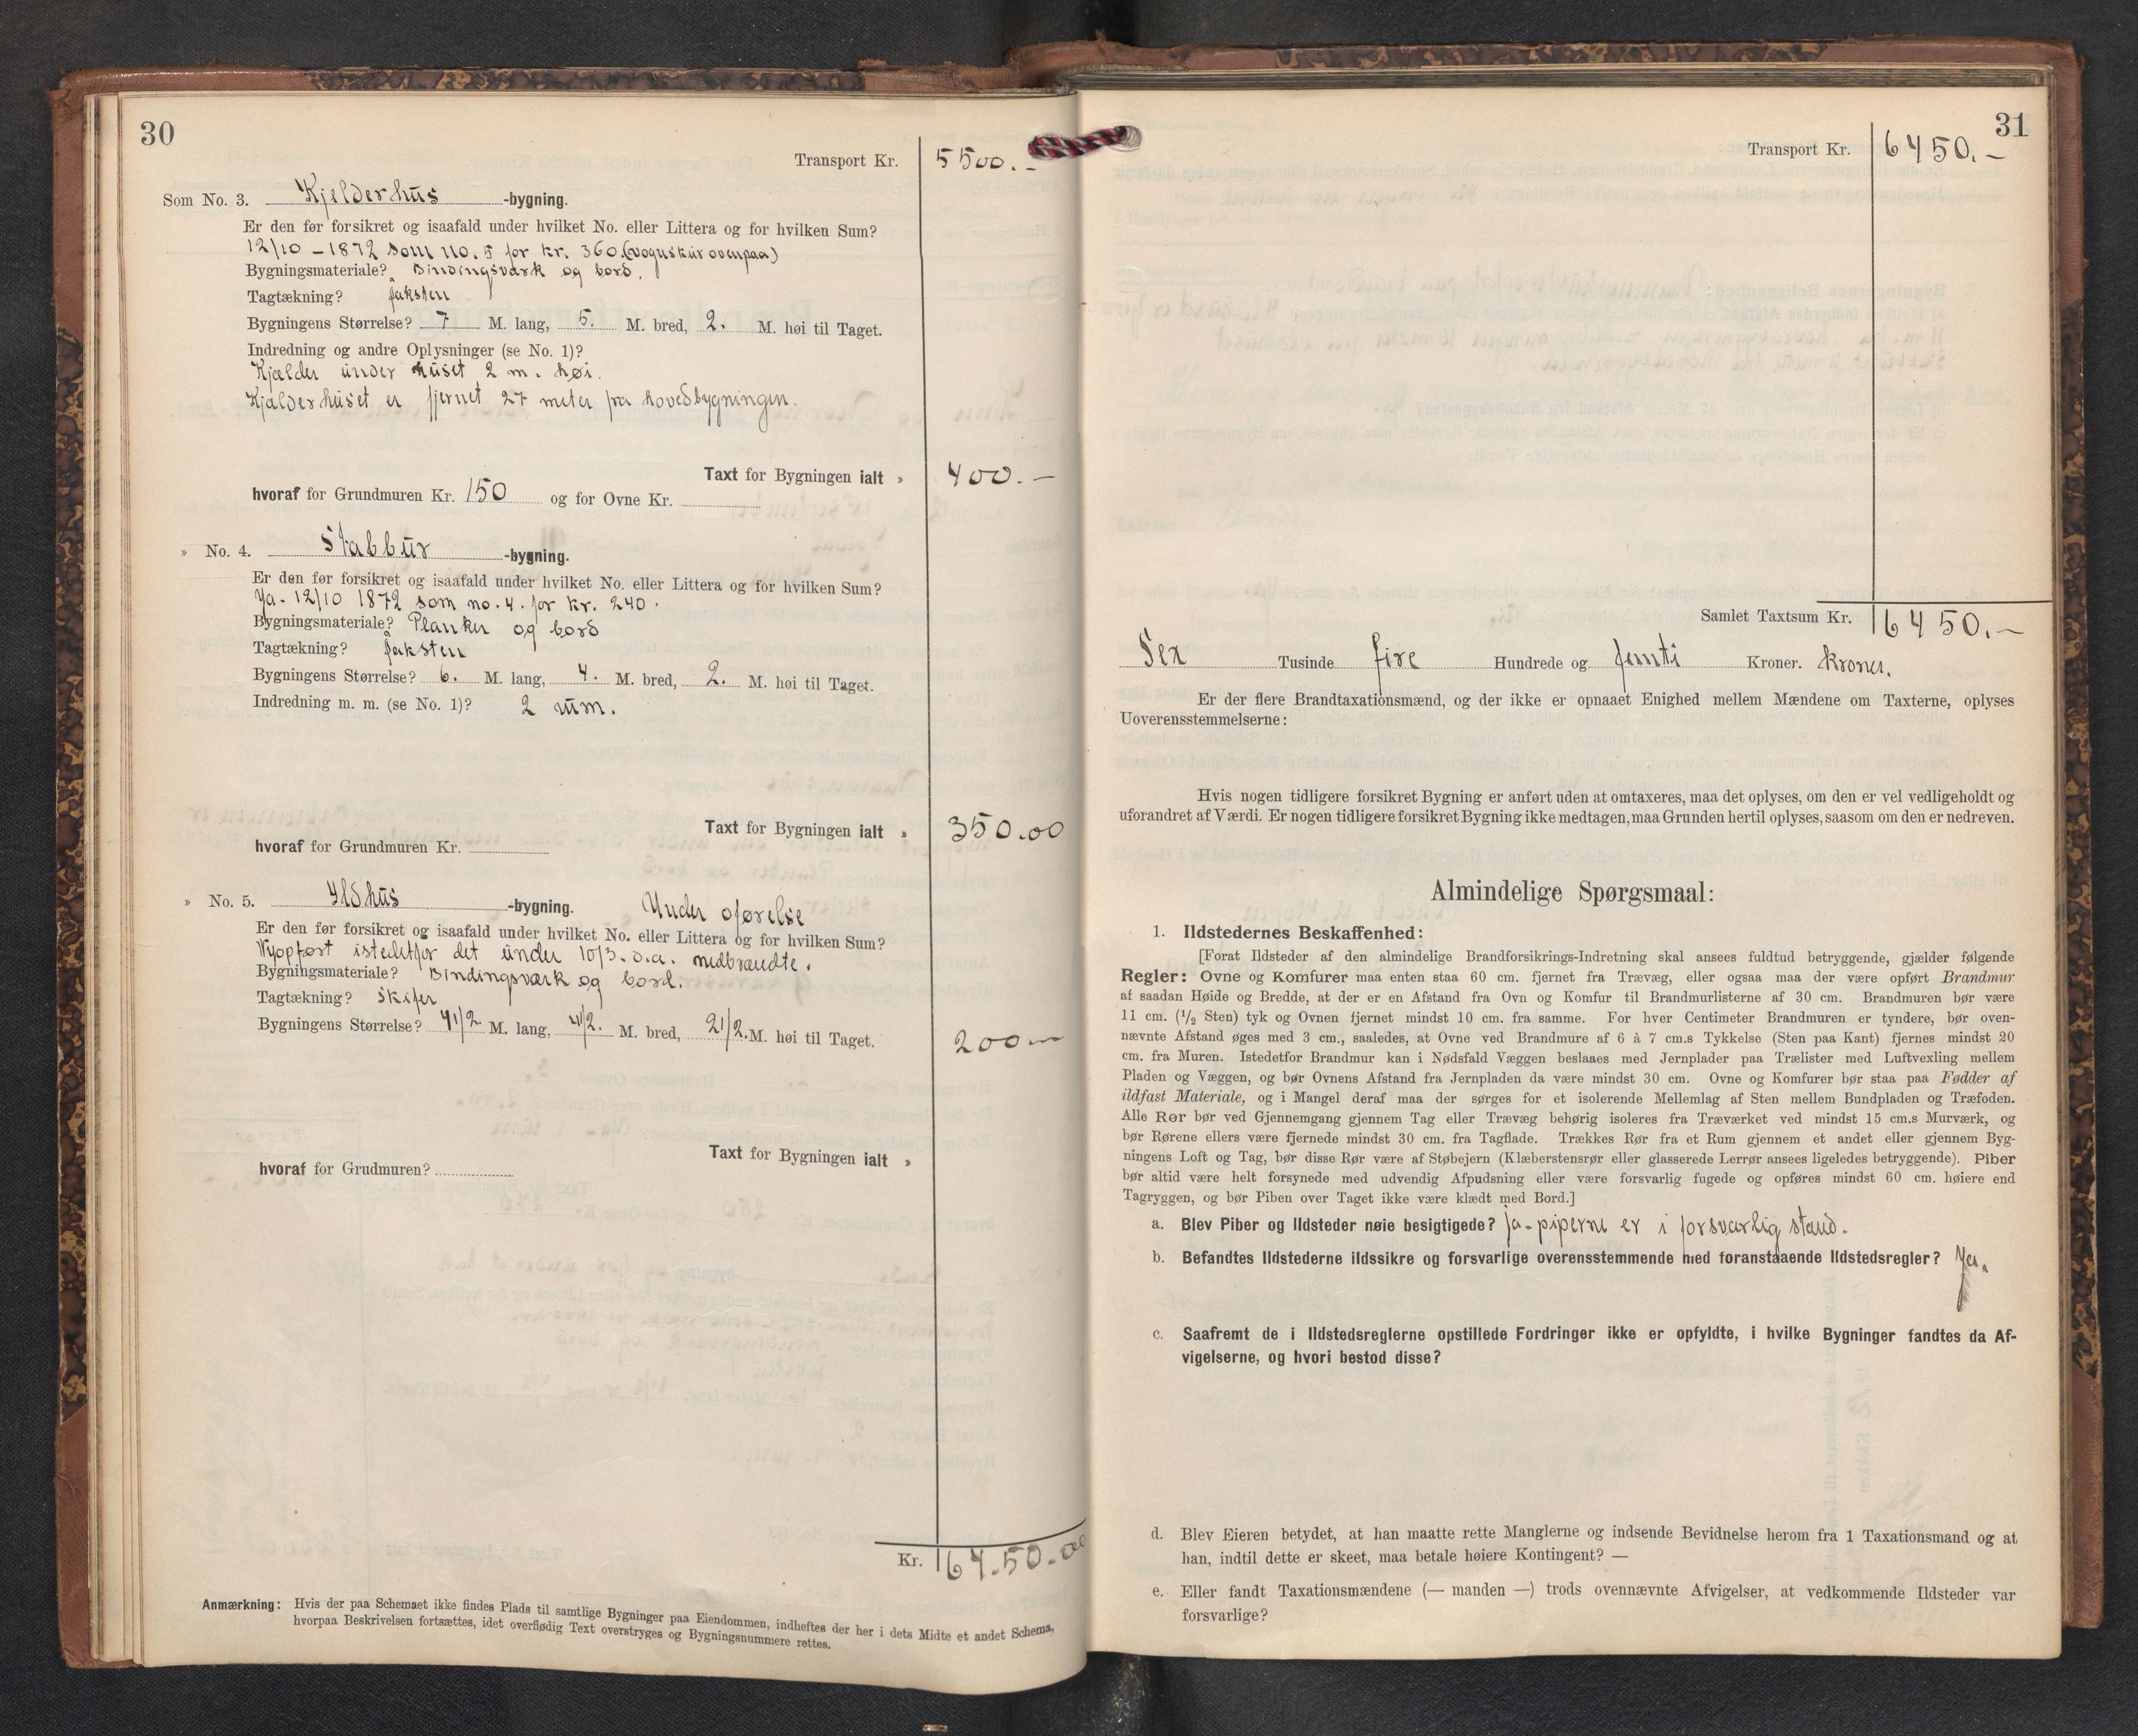 30
Transport Kr. 5500.-
Som No. 3. Kjelderhus -bygning.
Er den før forsikret og isaafald under hvilket No. eller Littera og for hvilken Sum?
12/10 - 1872 som no. 5 for kr. 360. (vognskur ovenpaa)
Bygningsmateriale? Bindingsværk og bord.
Tagtækning? Taksten
Bygningens Størrelse? 7 M. lang, 5. M. bred, 2. M. høi til Taget.
Indredning og andre Oplysninger (se No. 1)?
Kjælder under huset 2 m. høi.
Kjælderhuset er fjernet 27 meter fra hovedbygningen.
Taxt for Bygningen ialt » 400.-
hvoraf for Grundmuren Kr. 150 og for Ovne Kr.
» No. 4. Stabbur -bygning.
Er den før forsikret og isaafald under hvilket No. eller Littera og for hvilken Sum?
Ja. 12/10 1872 som no. 4. for kr. 240.
Bygningsmateriale? Planker og bord
Tagtækning? Taksten
Bygningens Størrelse? 6. M. lang, 4. M. bred, 2. M. høi til Taget.
Indredning m. m. (se No. 1)? 2 rum.
Taxt for Bygningen ialt » 350.00
hvoraf for Grundmuren Kr.
» No. 5. Ildhus -bygning. Under oførelse
Er den før forsikret og isaafald under hvilket No. eller Littera og for hvilken Sum?
Nyopført istedetfor det under 10/3. d.a. nedbrændte.
Bygningsmateriale? Bindingsværk og bord.
Tagtækning? Skifer
Bygningens Størrelse? 4 1/2 M. lang, 4 1/2. M. bred, 2 1/2. M. høi til Taget.
200.—
Taxt for Bygningen ialt »
hvoraf for Grudmuren?
Kr. 64.50.00
Anmærkning: Hvis der paa Schemaet ikke findes Plads til samtlige Bygninger paa Eiendommen, indheftes der her i dets Midte et andet Schema,
hvorpaa Beskrivelsen fortsættes, idet overflødig Text overstryges og Bygningsnummere rettes.
31
Transport Kr. 6450.-
Samlet Taxtsum Kr. 6450.-
Sex Tusinde fire Hundrede og femti Kroner. kroner.
Er der flere Brandtaxationsmænd, og der ikke er opnaaet Enighed mellem Mændene om Taxterne, oplyses
Uoverensstemmelserne:
Hvis nogen tidligere forsikret Bygning er anført uden at omtaxeres, maa det oplyses, om den er vel vedligeholdt og
uforandret af Værdi. Er nogen tidligere forsikret Bygning ikke medtagen, maa Grunden hertil oplyses, saasom om den er nedreven.
Almindelige Spørgsmaal:
1. Ildstedernes Beskaffenhed:
[Forat Ildsteder af den almindelige Brandforsikrings-Indretning skal ansees fuldtud betryggende, gjælder følgende
Regler: Ovne og Komfurer maa enten staa 60 cm. fjernet fra Trævæg, eller ogsaa maa der være opført Brandmur
af saadan Høide og Bredde, at der er en Afstand fra Ovn og Komfur til Brandmurlisterne af 30 cm. Brandmuren bør være
11 cm. (1/2 Sten) tyk og Ovnen fjernet mindst 10 cm. fra samme. For hver Centimeter Brandmuren er tyndere, bør oven-
nævnte Afstand øges med 3 cm., saaledes, at Ovne ved Brandmure af 6 à 7 cm.s Tykkelse (Sten paa Kant) fjernes mindst 20
cm. fra Muren. Istedetfor Brandmur kan i Nødsfald Væggen beslaaes med Jernplader paa Trælister med Luftvexling mellem
Pladen og Væggen, og bør Ovnens Afstand fra Jernpladen da være mindst 30 cm. Ovne og Komfurer bør staa paa Fødder af
ildfast Materiale, og i Mangel deraf maa der sørges for et isolerende Mellemlag af Sten mellem Bundpladen og Træfoden.
Alle Rør bør ved Gjennemgang gjennem Tag eller Trævæg behørig isoleres fra Træværket ved mindst 15 cm.s Murværk, og
bør Rørene ellers være fjernede mindst 30 cm. fra Tagflade. Trækkes Rør fra et Rum gjennem et andet eller gjennem Byg-
ningens Loft og Tag, bør disse Rør være af Støbejern (Klæberstensrør eller glasserede Lerrør ansees ligeledes betryggende). Piber
bør altid være helt forsynede med udvendig Afpudsning eller være forsvarlig fugede og opføres mindst 60 cm. høiere end
Tagryggen, og bør Piben over Taget ikke være klædt med Bord.]
a. Blev Piber og Ildsteder nøie besigtigede? Ja - piperne er i forsvarlig stand.
b. Befandtes Ildstederne ildssikre og forsvarlige overensstemmende med foranstaaende Ildstedsregler? Ja.
c. Saafremt de i Ildstedsreglerne opstillede Fordringer ikke er opfyldte, i hvilke Bygninger fandtes da Af-
vigelserne, og hvori bestod disse?
d. Blev Eieren betydet, at han maatte rette Manglerne og indsende Bevidnelse herom fra 1 Taxationsmand og at
han, indtil dette er skeet, maa betale høiere Kontingent? —
e. Eller fandt Taxationsmændene (— manden —) trods ovennævnte Afvigelser, at vedkommende Ildsteder var
forsvarlige?